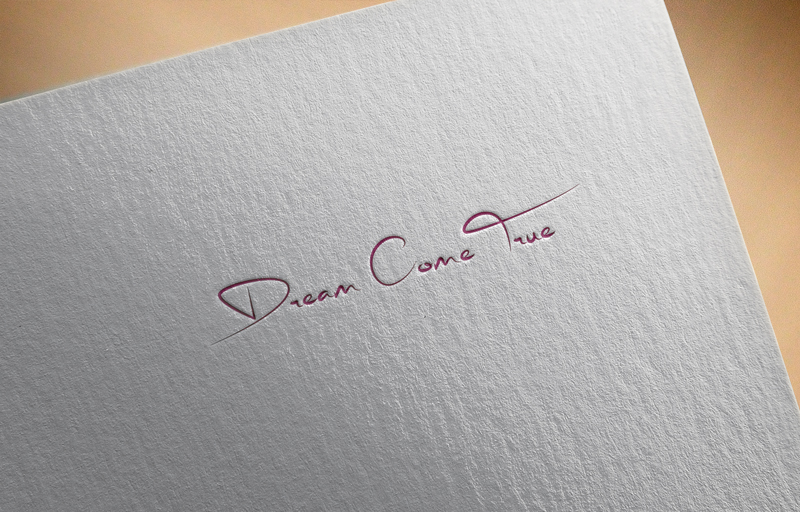 Dream Come True